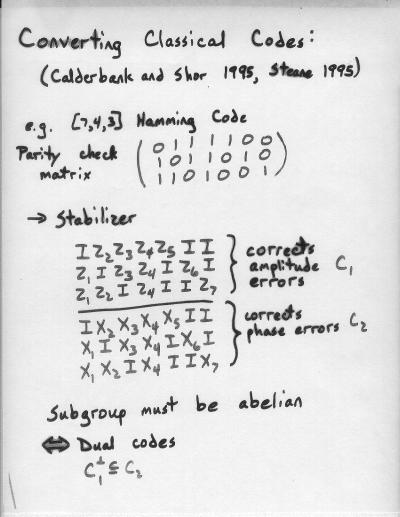 Converting Classical Codes:
(Calderbank and Shor 1995, Steane 1995)
e.g. [7,4,3] Hamming Code
Parity check matrix
0 1 1 1 1 0 0
1 0 1 1 0 1 0
1 1 0 1 0 0 1
→ Stabilizer
I Z₂ Z₃ Z₄ Z₅ I I
Z₁ I Z₃ Z₄ I Z₆ I
Z₁ Z₂ I Z₄ I I Z₇
corrects amplitude errors C₁
I X₂ X₃ X₄ X₅ I I
X₁ I X₃ X₄ I X₆ I
X₁ X₂ I X₄ I I X₇
corrects phase errors C₂
Subgroup must be abelian
⇔ Dual codes
C₁^⊥ ⊆ C₂